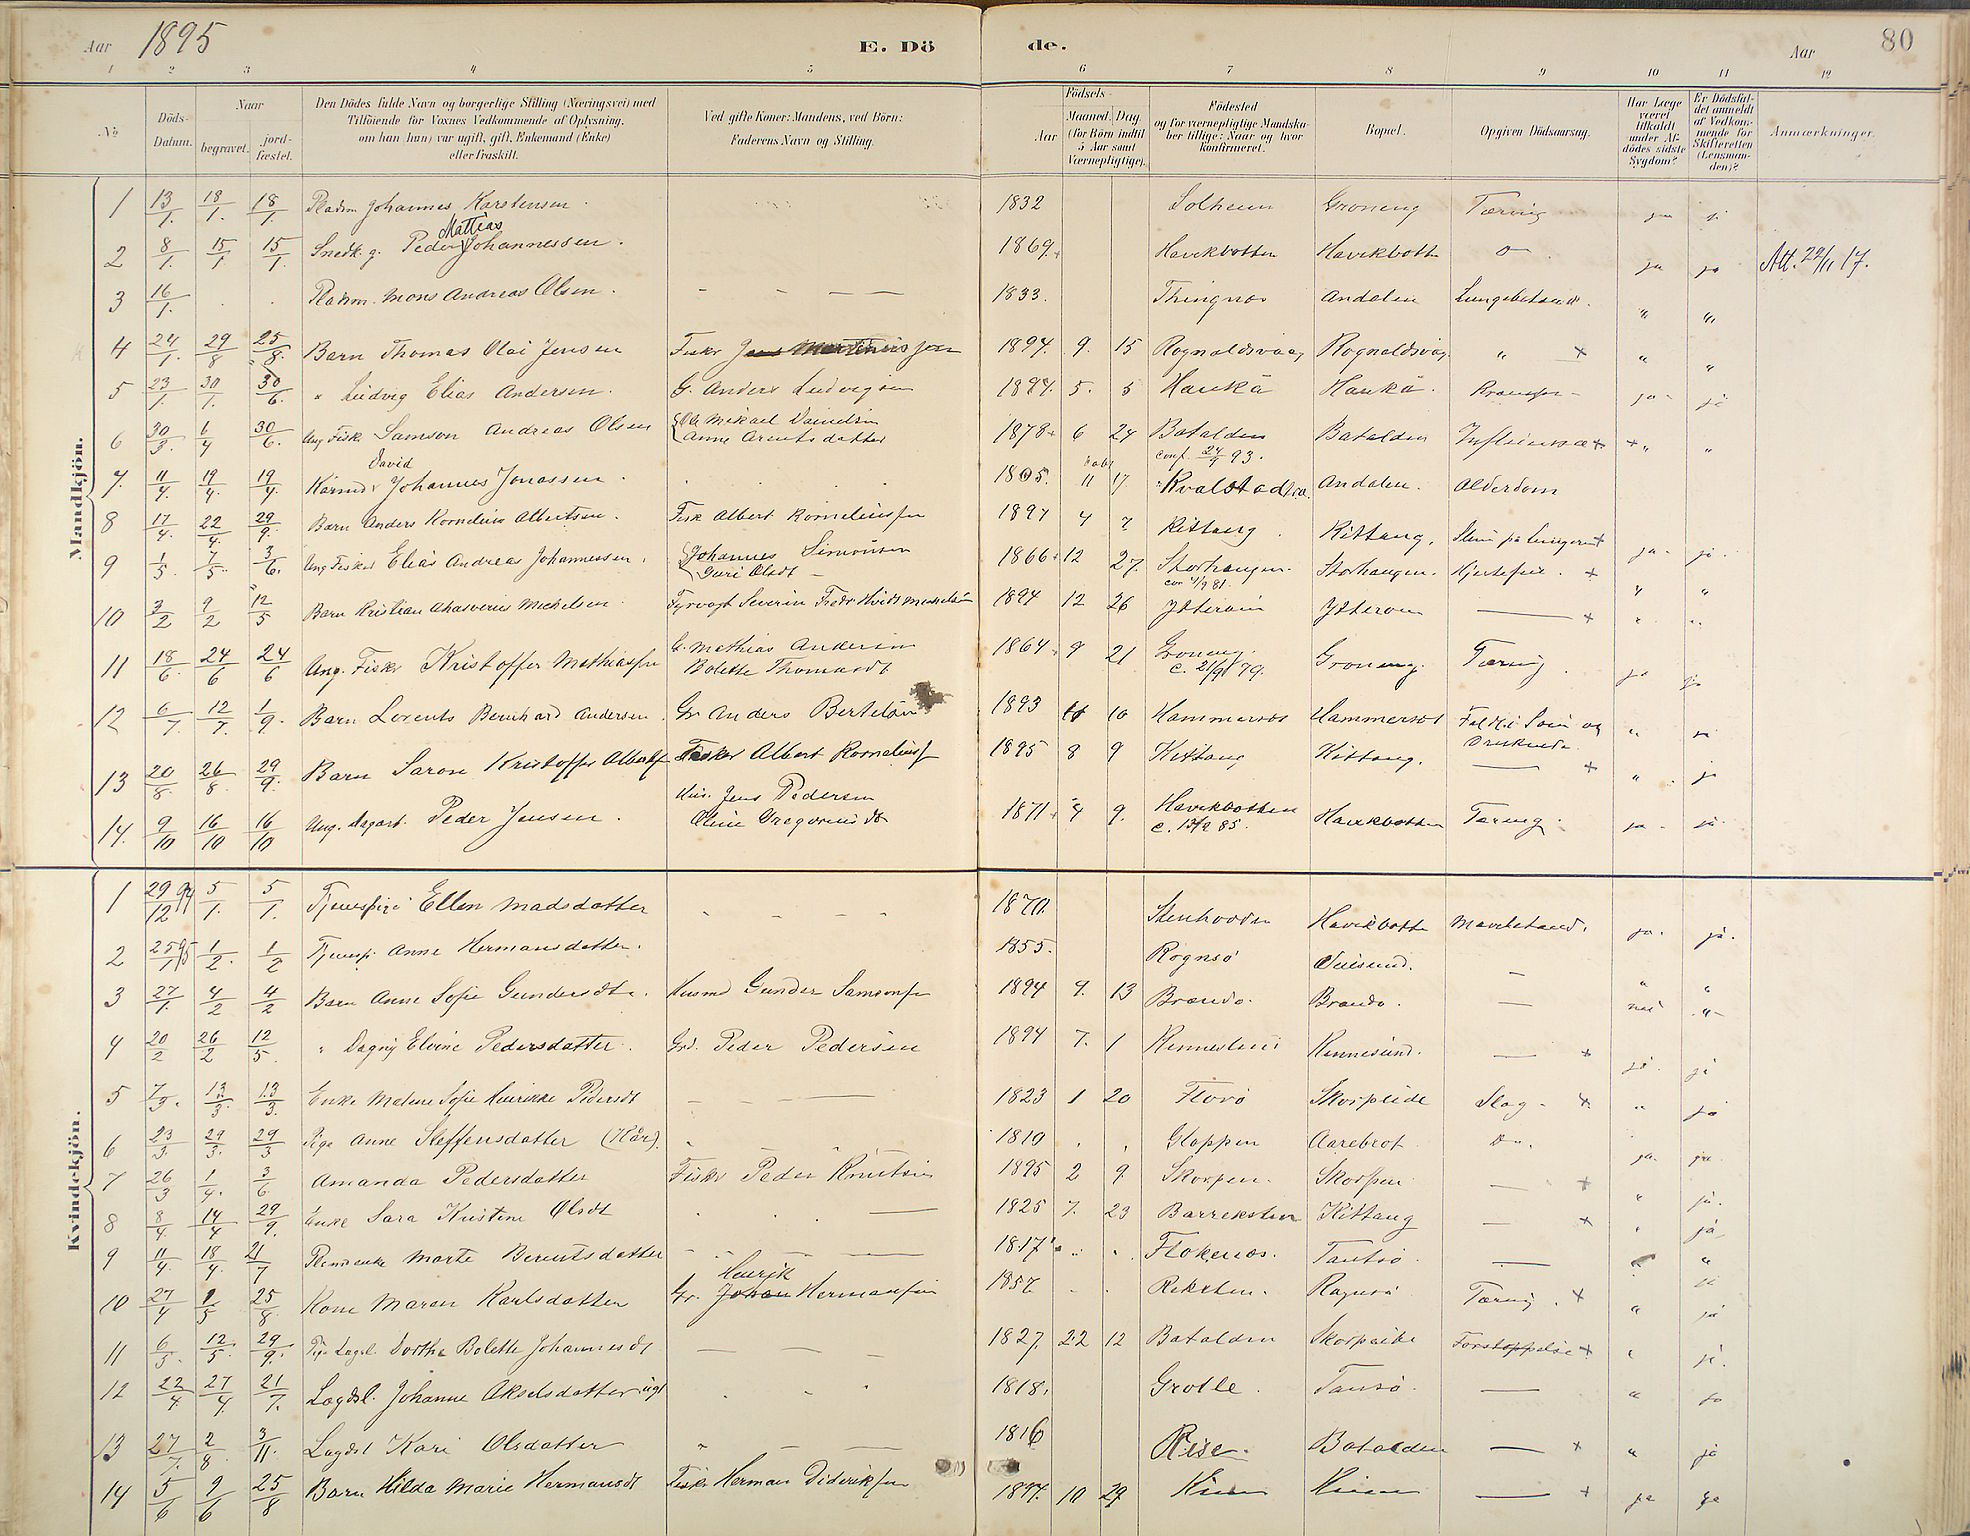 Aar 1895 E. Dö de. Aar 80
1 2 3 4 5 6 7 8 9 10 11 12
No
Döds-Datum.
Naar
begravet.
jord-fæstet.
Den Dödes fulde Navn og borgerlige Stilling (Næringsvei) med
Tilföiende for Voxnes Vedkommende af Oplysning,
om han (hun) var ugift, gift, Enkemand (Enke)
eller fraskilt.
Ved gifte Koner: Mandens, ved Börn:
Faderens Navn og Stilling.
Födsels-
Aar
Maaned. Dag.
(for Börn indtil
5 Aar samt
Værnepligtige).
Födested
og for værnepligtige Mandska-
ber tillige: Naar og hvor
konfirmeret.
Bopæl.
Opgiven Dödsaarsag.
Har Læge
været
tilkaldt
under Af-
dödes sidste
Sygdom?
Er Dödsfal-
det anmeldt
af Vedkom-
mende for
Skifteretten
(Lensman-
den)?
Anmærkninger.
Mandkjön.
1 13/1. 18/1. 18/1. Johannes Karstensen 1832 Solheim Groneng Tæring ja ja
Mattias
2 8/1. 15/1 15/1. Snedk. g. Peder Johannessen. 1869. Havikbotten Havikbotten ja ja Att. 29/11 17.
3 16/1. Mons Andreas Olsen. 1833. Thingnæs Andalen " "
4 24/1. 29/8 25/8. Barn Thomas Olai Jensen Fisker Jens Martinus 1894. 9. 15 Rognaldsvaag Rognaldsvaag " + " "
5 23/1. 30/1. 30/6. " Ludvig Elias Andersen. G. Anders Ludvigsen 1894. 5. 5 Haukå Haukå. ja ja
6 30/3. 1/4 30/6. Ung. Fisker Samson Andreas Olsen Ole Mikael Danielsen
Anne Arentsdatter 1878 6 24 Batalden Batalden + " "
conf. 24/9 93.
David
7. 11/4. 19/4. 19/4. Johannes Jonassen. 1805. 11 17 Kvalstad Andalen. Alderdom
8 17/4. 22/4. 29/9. Barn Anders Kornelius Albertsen. Fisk Albert Korneliussen 1894 4 7 Kittang. Kittang, Slim på Lungerne + ja ja
9 1/5. 7/5. 3/6. Ung Fisker Elias Andreas Johannessen. Johannes Simonsen
Guri Olsdt 1866 12 27. Storhaugen. Storhaugen. Hjertefeil. + " "
10 3/2 9/2 12/5 Barn Kristian Ahasverus Michelsen Fyrvogt Severin Fredr. Hvidt Michelsen 1894 12 26 Ytterøen Ytterøen + " "
11 18/6. 24/6 24/6 Ung. Fisker Kristoffer Mathiassen G. Mathias Andersen
Bolette Thomasdt 1864 9 21 Groneng. Groneng. Tæring. ja ja
c. 21/9 79.
12 6/7. 12/7. 1/9. Barn Lorents Bernhard Andersen. Gr Anders Bertelsen 1893 10 Hammersøt Hammersøt Fald i Søen og
Druknede " ja
13 20/8. 26/8. 29/9. Barn Saron Kristoffer Albertsen Fisker Albert Korneliussen 1895 8 9 Kittang Kittang. + " ja
14. 9/10 16/10 16/10 Ung. Dagarb. Peder Jensen. Hus. Jens Pedersen
Oline Gregoriusdt 1871 4 9. Havikbotten Havikbotten Tæring. ja ja
c. 85.
Kvindekjön.
1 29/12 94 5/1. 5/1. Tjenestpige Ellen Madsdatter 1870. Stenhovden Havikbotten Mavebetænd. ja. ja.
2 25/1 95 1/2. 1/2 Tjenestp. Anne Hermansdatter. 1855. Rognsø " "
3 27/1. 4/2 4/2 Barn Anne Sofie Gundersdtr. Husmd Gunder Samsonsen 1894 9. 13 Brandø. Brandø. nei "
4 20/2 26/2 12/5. " Dagny Elvine Pedersdatter. Grd. Peder Pedersen 1894 7. 1 Kinnesund. + ja. ja
5 7/3. 13/3. 13/3. Enke Malene Sofie Henrikke Pedersdt 1823 1 20 Florø Skorpeide Slag + " ja
6 23/3. 29/3. 29/3 Pige Anne Steffensdatter 1810 Gloppen Aarebrot Do. ja. ja
7 26/3 1/4. 3/6 Amanda Pedersdatter Fisker Peder Knutsen 1895 2 9. Skorpen. Skorpen + " ja.
8 8/4. 14/4 29/9. Enke Sara Kristine Olsdt 1825 7. 23 Barrekstøen Kittang + " ja
9 11/4. 18/4. 21/7 Marte Berentsdatter 1817 Flokenes. Tansø. "
Henrik
10 27/4 1/5 25/8. Kone Maren Karlsdatter Gr. Johan Hermansen 1857. Reksten. Rognsø Tæring. + " ja
11 6/5. 12/5. 29/9. Pige Dorthe Bolette Johannesdt 1827. 22 12 Batalden Skorpeide Forstoppelse + " ja.
12 22/4 27/4. 21/7. Lægdsl. Johanne Akselsdatter ugt 1818. Grotle. Tansø. " ja
13 27/7. 2/8. 3/11. Lægdsl Kari Olsdatter 1816 Rise. Batalden + " ja
14 5/6 9/6 25/8 Barn Hilda Marie Hermansdt Fisker Herman Didriksen 1894. 10 29. Kinn Kinn + ja ja